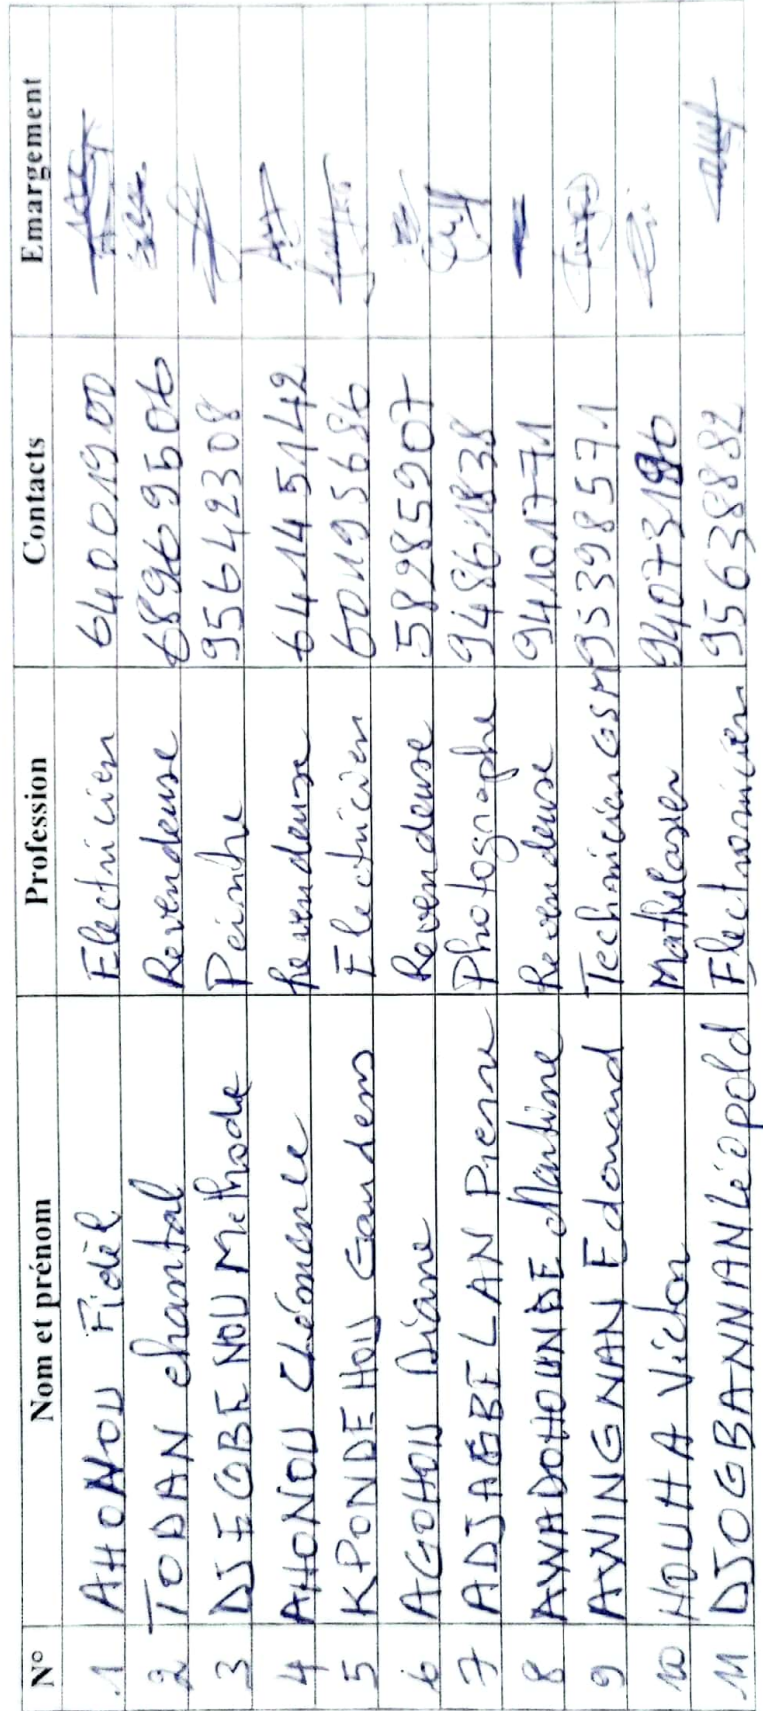 N° Nom et prénom Profession Contacts Emargement
1 AHONOU Fidèl Electricien 64001900
2 TODAN chantal Revendeuse 68969506
3 DJEGBENOU Méthode Peintre 95642308
4 AHONOU Clémence Revendeuse 64145142
5 KPONDEHOU Gaudens Electricien 60195686
6 AGOHOU Diane Revendeuse 58985907
7 ADJAGBELAN Pierre Photographe 94861838
8 AWADOHOUNDE Martine Revendeuse 94101771
9 AWINGNAN Edouard Technicien GSM 95398571
10 HOUHA Victor Mathelasier
11 DJOGBANNAN Léopold Electronicien 95638882